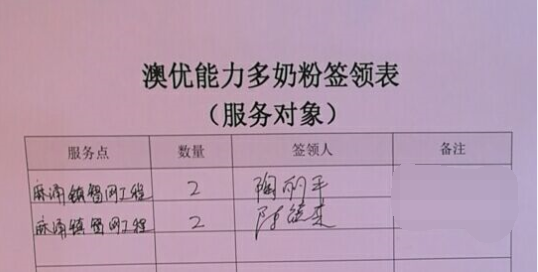 澳优能力多奶粉签领表
（服务对象）
服务点 数量 签领人 备注
麻涌镇智网工程 2 陶丽平
麻涌镇智网工程 2 陈